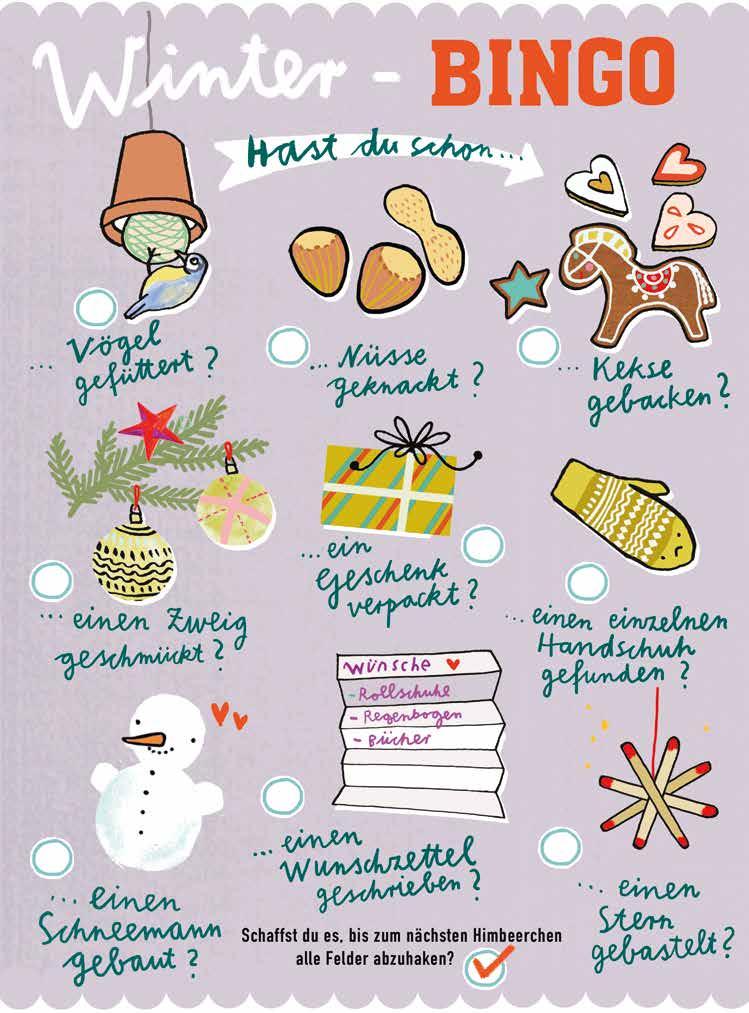 Winter - BINGO
Hast du schon...
... Vögel
gefüttert?
... Nüsse
geknackt?
... Kekse
gebacken?
... einen Zweig
geschmückt?
...ein
Geschenk
verpackt?
... einen einzelnen
Handschuh
gefunden?
Wünsche
- Rollschuhe
- Regenbogen
- Bücher
... einen
Schneemann
gebaut?
... einen
Wunschzettel
geschrieben?
... einen
Stern
gebastelt?
Schaffst du es, bis zum nächsten Himbeerchen
alle Felder abzuhaken?